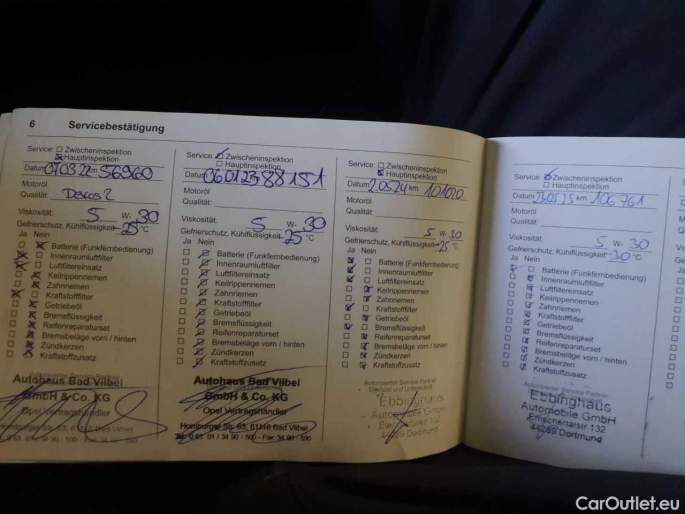 6 Servicebestätigung
Service: Zwischeninspektion
Hauptinspektion
Datum 070322 km 56960
Motoröl
Qualität: Dexos 2
Viskosität: 5 W- 30
Gefrierschutz, Kühlflüssigkeit -25 °C
Ja Nein
Batterie (Funkfernbedienung)
Innenraumluftfilter
Luftfiltereinsatz
Keilrippenriemen
Zahnriemen
Kraftstofffilter
Getriebeöl
Bremsflüssigkeit
Reifenreparaturset
Bremsbeläge vorn / hinten
Zündkerzen
Kraftstoffzusatz
Autorisierter Service Partner
Autohaus Bad Vilbel
GmbH & Co. KG
Opel Vertragshändler
Homburger Str. 63, 61118 Bad Vilbel
Service: Zwischeninspektion
Hauptinspektion
Datum 060123 88151
Motoröl
Qualität:
Viskosität: 5 W- 30
Gefrierschutz, Kühlflüssigkeit -25 °C
Ja Nein
Batterie (Funkfernbedienung)
Innenraumluftfilter
Luftfiltereinsatz
Keilrippenriemen
Zahnriemen
Kraftstofffilter
Getriebeöl
Bremsflüssigkeit
Reifenreparaturset
Bremsbeläge vorn / hinten
Zündkerzen
Kraftstoffzusatz
Autohaus Bad Vilbel
GmbH & Co. KG
Opel Vertragshändler
Homburger Str. 63, 61118 Bad Vilbel
Service: Zwischeninspektion
Hauptinspektion
Datum 2.05.24 km 101020
Motoröl
Qualität:
Viskosität: 5 W- 30
Gefrierschutz, Kühlflüssigkeit -25 °C
Ja Nein
Batterie (Funkfernbedienung)
Innenraumluftfilter
Luftfiltereinsatz
Keilrippenriemen
Zahnriemen
Kraftstofffilter
Getriebeöl
Bremsflüssigkeit
Reifenreparaturset
Bremsbeläge vorn / hinten
Zündkerzen
Kraftstoffzusatz
Autorisierter Service Partner
Stempel und Unterschrift
Ebbinghaus
Automobile GmbH
44269 Dortmund
Service: Zwischeninspektion
Hauptinspektion
Datum km 106761
Motoröl
Qualität:
Viskosität: 5 W- 30
Gefrierschutz, Kühlflüssigkeit -30 °C
Ja Nein
Batterie (Funkfernbedienung)
Innenraumluftfilter
Luftfiltereinsatz
Keilrippenriemen
Zahnriemen
Kraftstofffilter
Getriebeöl
Bremsflüssigkeit
Reifenreparaturset
Bremsbeläge vorn / hinten
Zündkerzen
Kraftstoffzusatz
Autorisierter Service Partner
Ebbinghaus
Automobile GmbH
Emschertalstr 132
44269 Dortmund
CarOutlet.eu